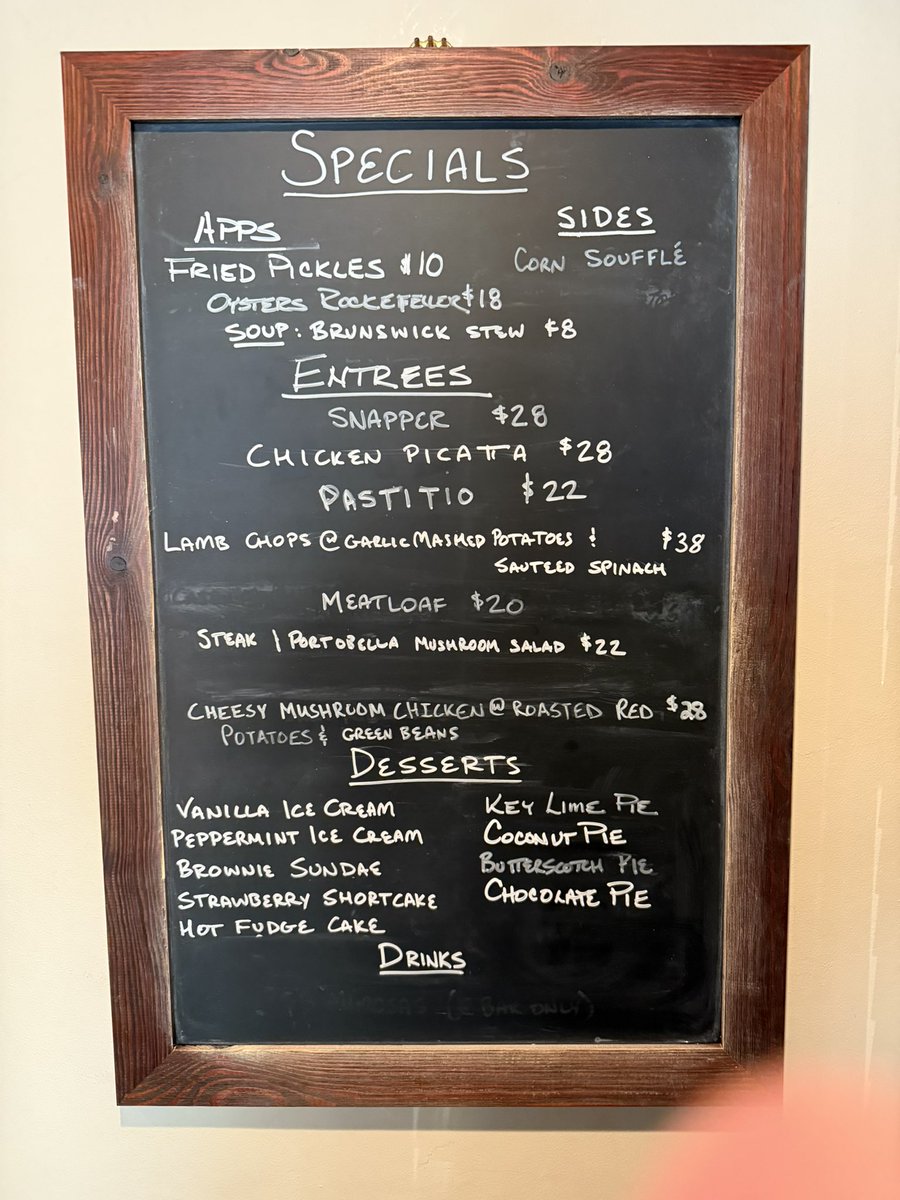 SPECIALS
APPS
FRIED PICKLES $10
OYSTERS ROCKEFELLER $18
SOUP: BRUNSWICK STEW $8
SIDES
CORN SOUFFLÉ
ENTREES
SNAPPER $28
CHICKEN PICATTA $28
PASTITIO $22
LAMB CHOPS @ GARLIC MASHED POTATOES & $38
SAUTEED SPINACH
MEATLOAF $20
STEAK | PORTOBELLA MUSHROOM SALAD $22
CHEESY MUSHROOM CHICKEN @ ROASTED RED $28
POTATOES & GREEN BEANS
DESSERTS
VANILLA ICE CREAM
PEPPERMINT ICE CREAM
BROWNIE SUNDAE
STRAWBERRY SHORTCAKE
HOT FUDGE CAKE
KEY LIME PIE
COCONUT PIE
BUTTERSCOTCH PIE
CHOCOLATE PIE
DRINKS
BAR ONLY)